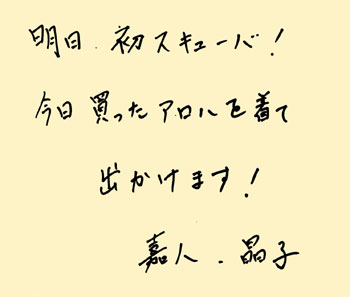 明日、初スキューバ!
今日買ったアロハを着て
出かけます!
嘉人.晶子